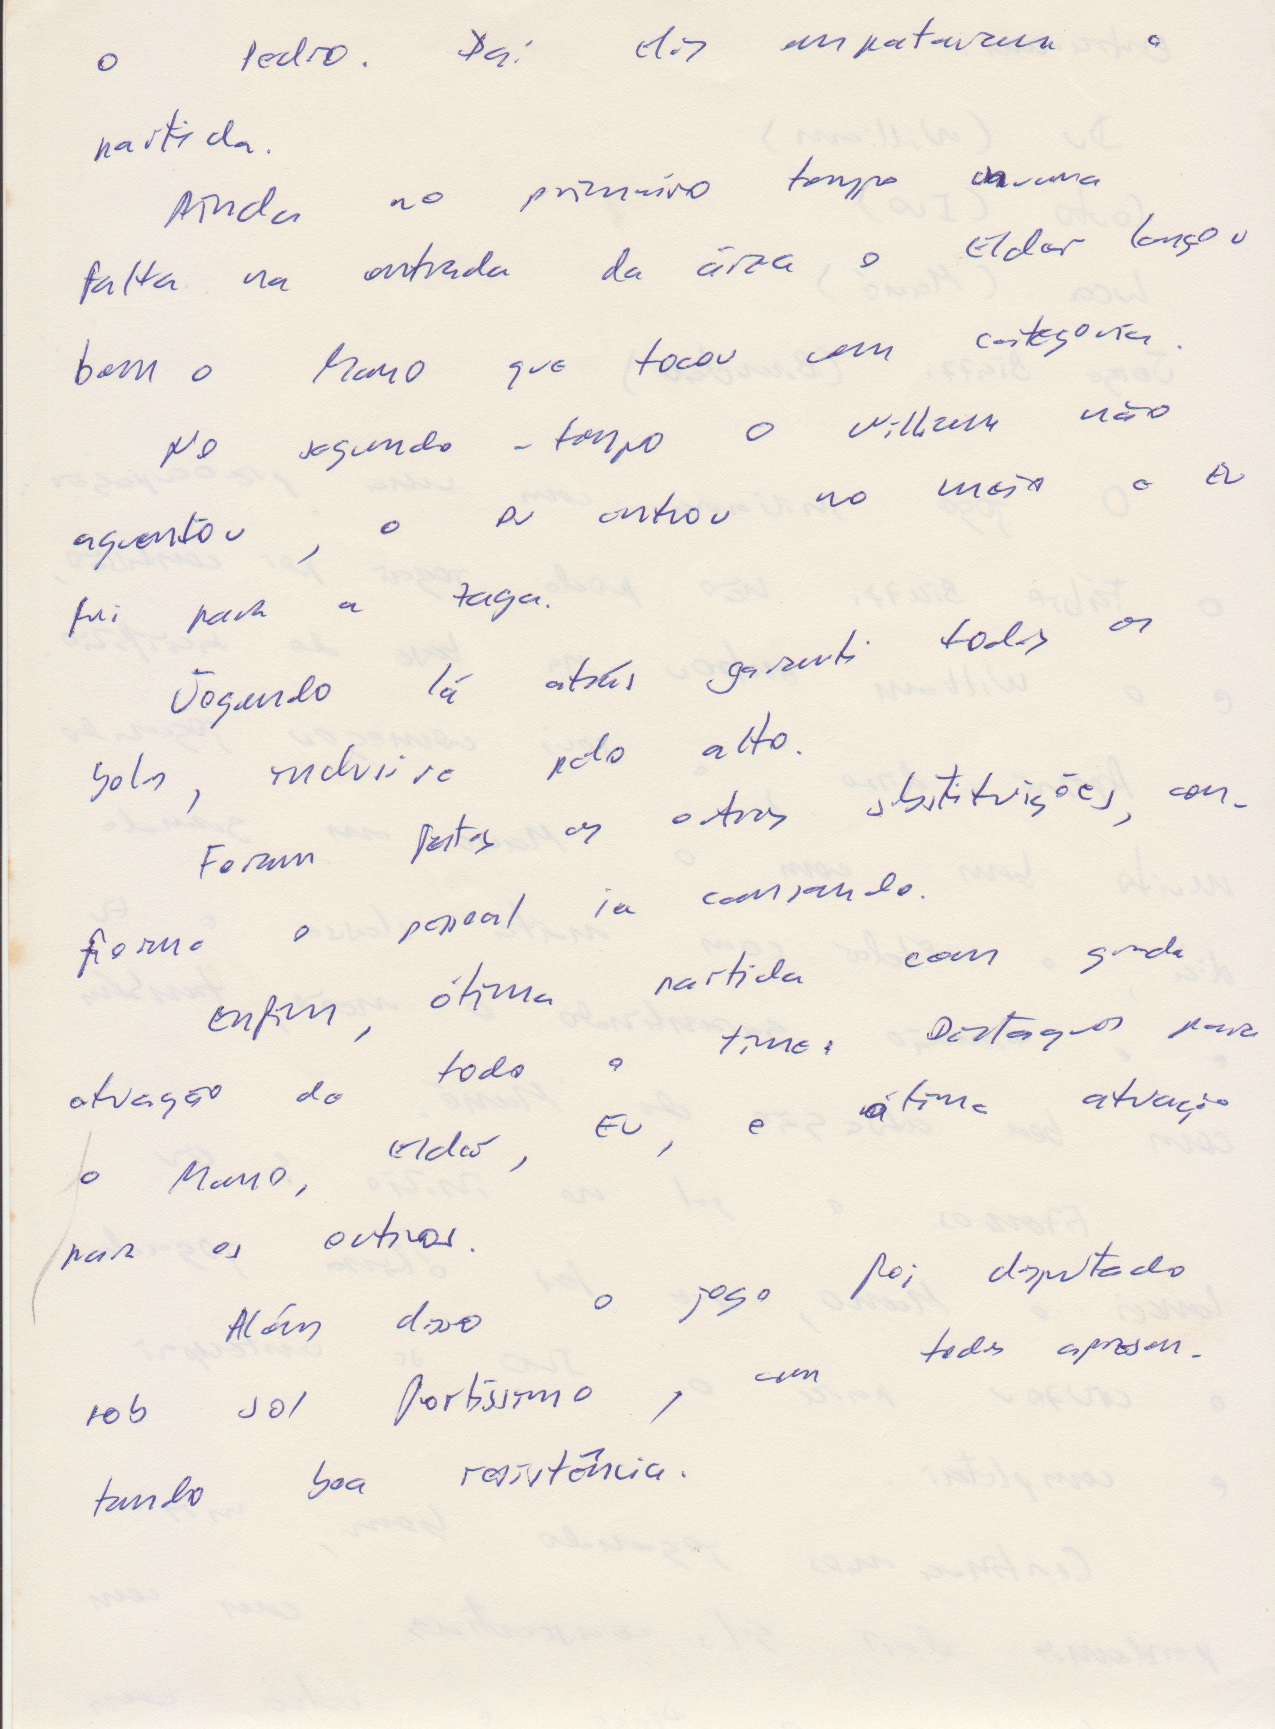 o Pedro. Daí eles empataram a
partida.
Ainda no primeiro tempo numa
falta na entrada da área o Eldor lançou
bem o Mano que tocou com categoria.
No segundo-tempo o William não
aguentou, o Du entrou no meio e Eu
fui para a zaga.
Jogando lá atrás garanti todas as
bolas, inclusive pelo alto.
Foram feitas as outras substituições, con-
forme o pessoal ia cansando.
Enfim, ótima partida com grande
atuação de todo o time. Destaques para
o Mano, Eldor, Eu, e ótima atuação
para os outros.
Além disso o jogo foi disputado
sob sol fortíssimo, com todos apresen-
tando boa resistência.